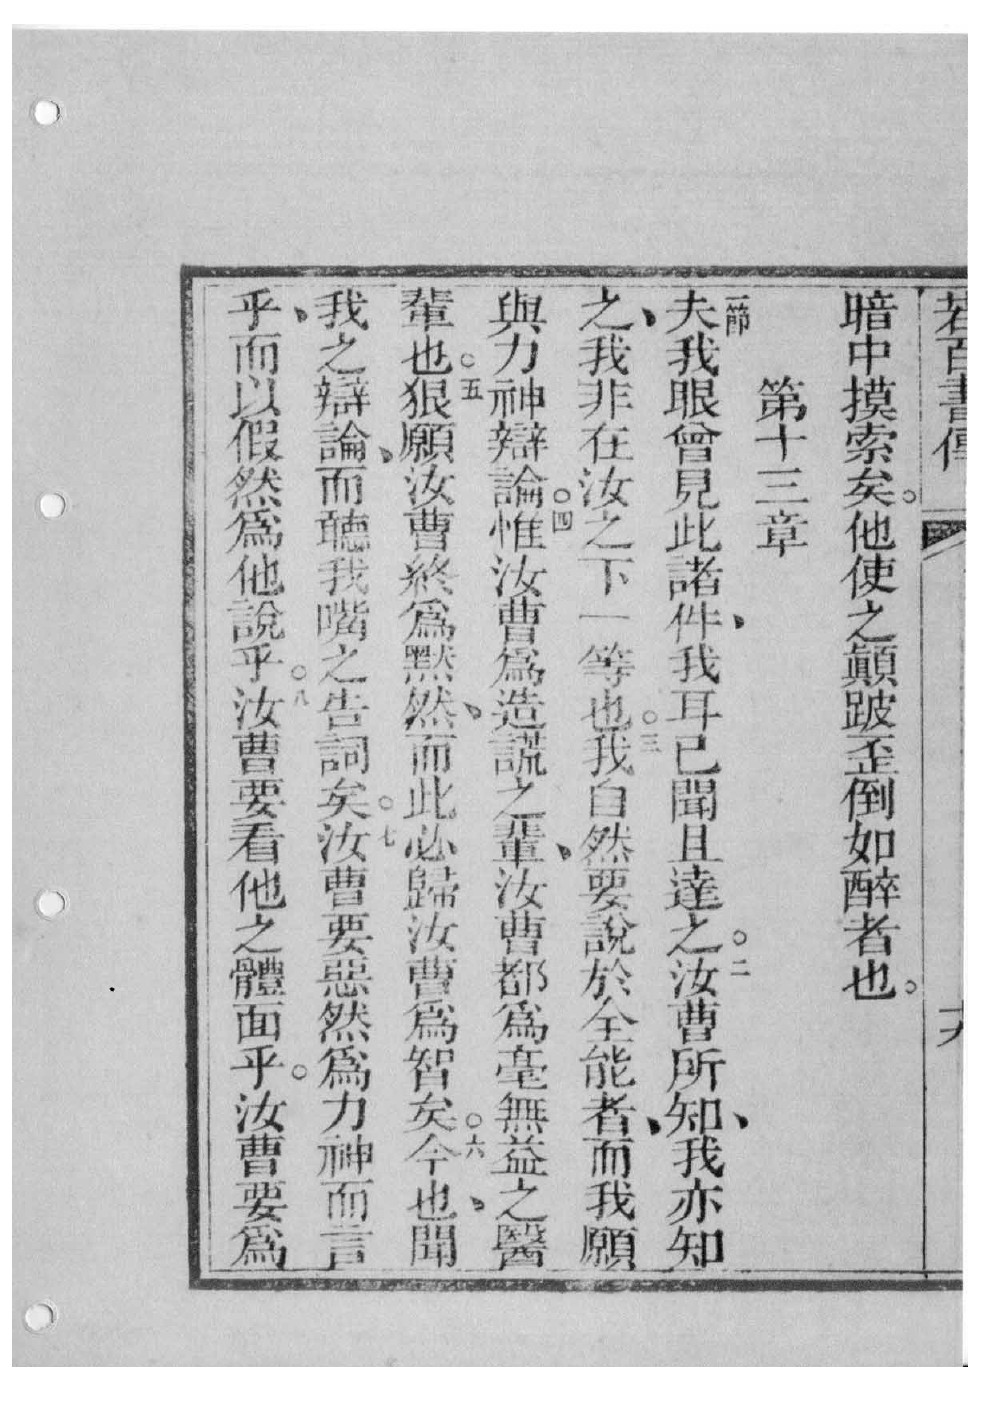 若百書傳
暗中摸索矣。他使之顛跛歪倒如醉者也。
第十三章
一節夫我眼曾見此諸件、我耳已聞且達之。二汝曹所知、我亦知
之、我非在汝之下一等也。三我自然要說於全能者、而我願
與力神辯論。四惟汝曹爲造謊之輩、汝曹都爲毫無益之醫
輩也。五狠願汝曹終爲默然、而此必歸汝曹爲智矣。六今也、聞
我之辯論、而聽我嘴之告詞矣。七汝曹要惡然爲力神而言
乎、而以假然爲他說乎。八汝曹要看他之體面乎。汝曹要爲